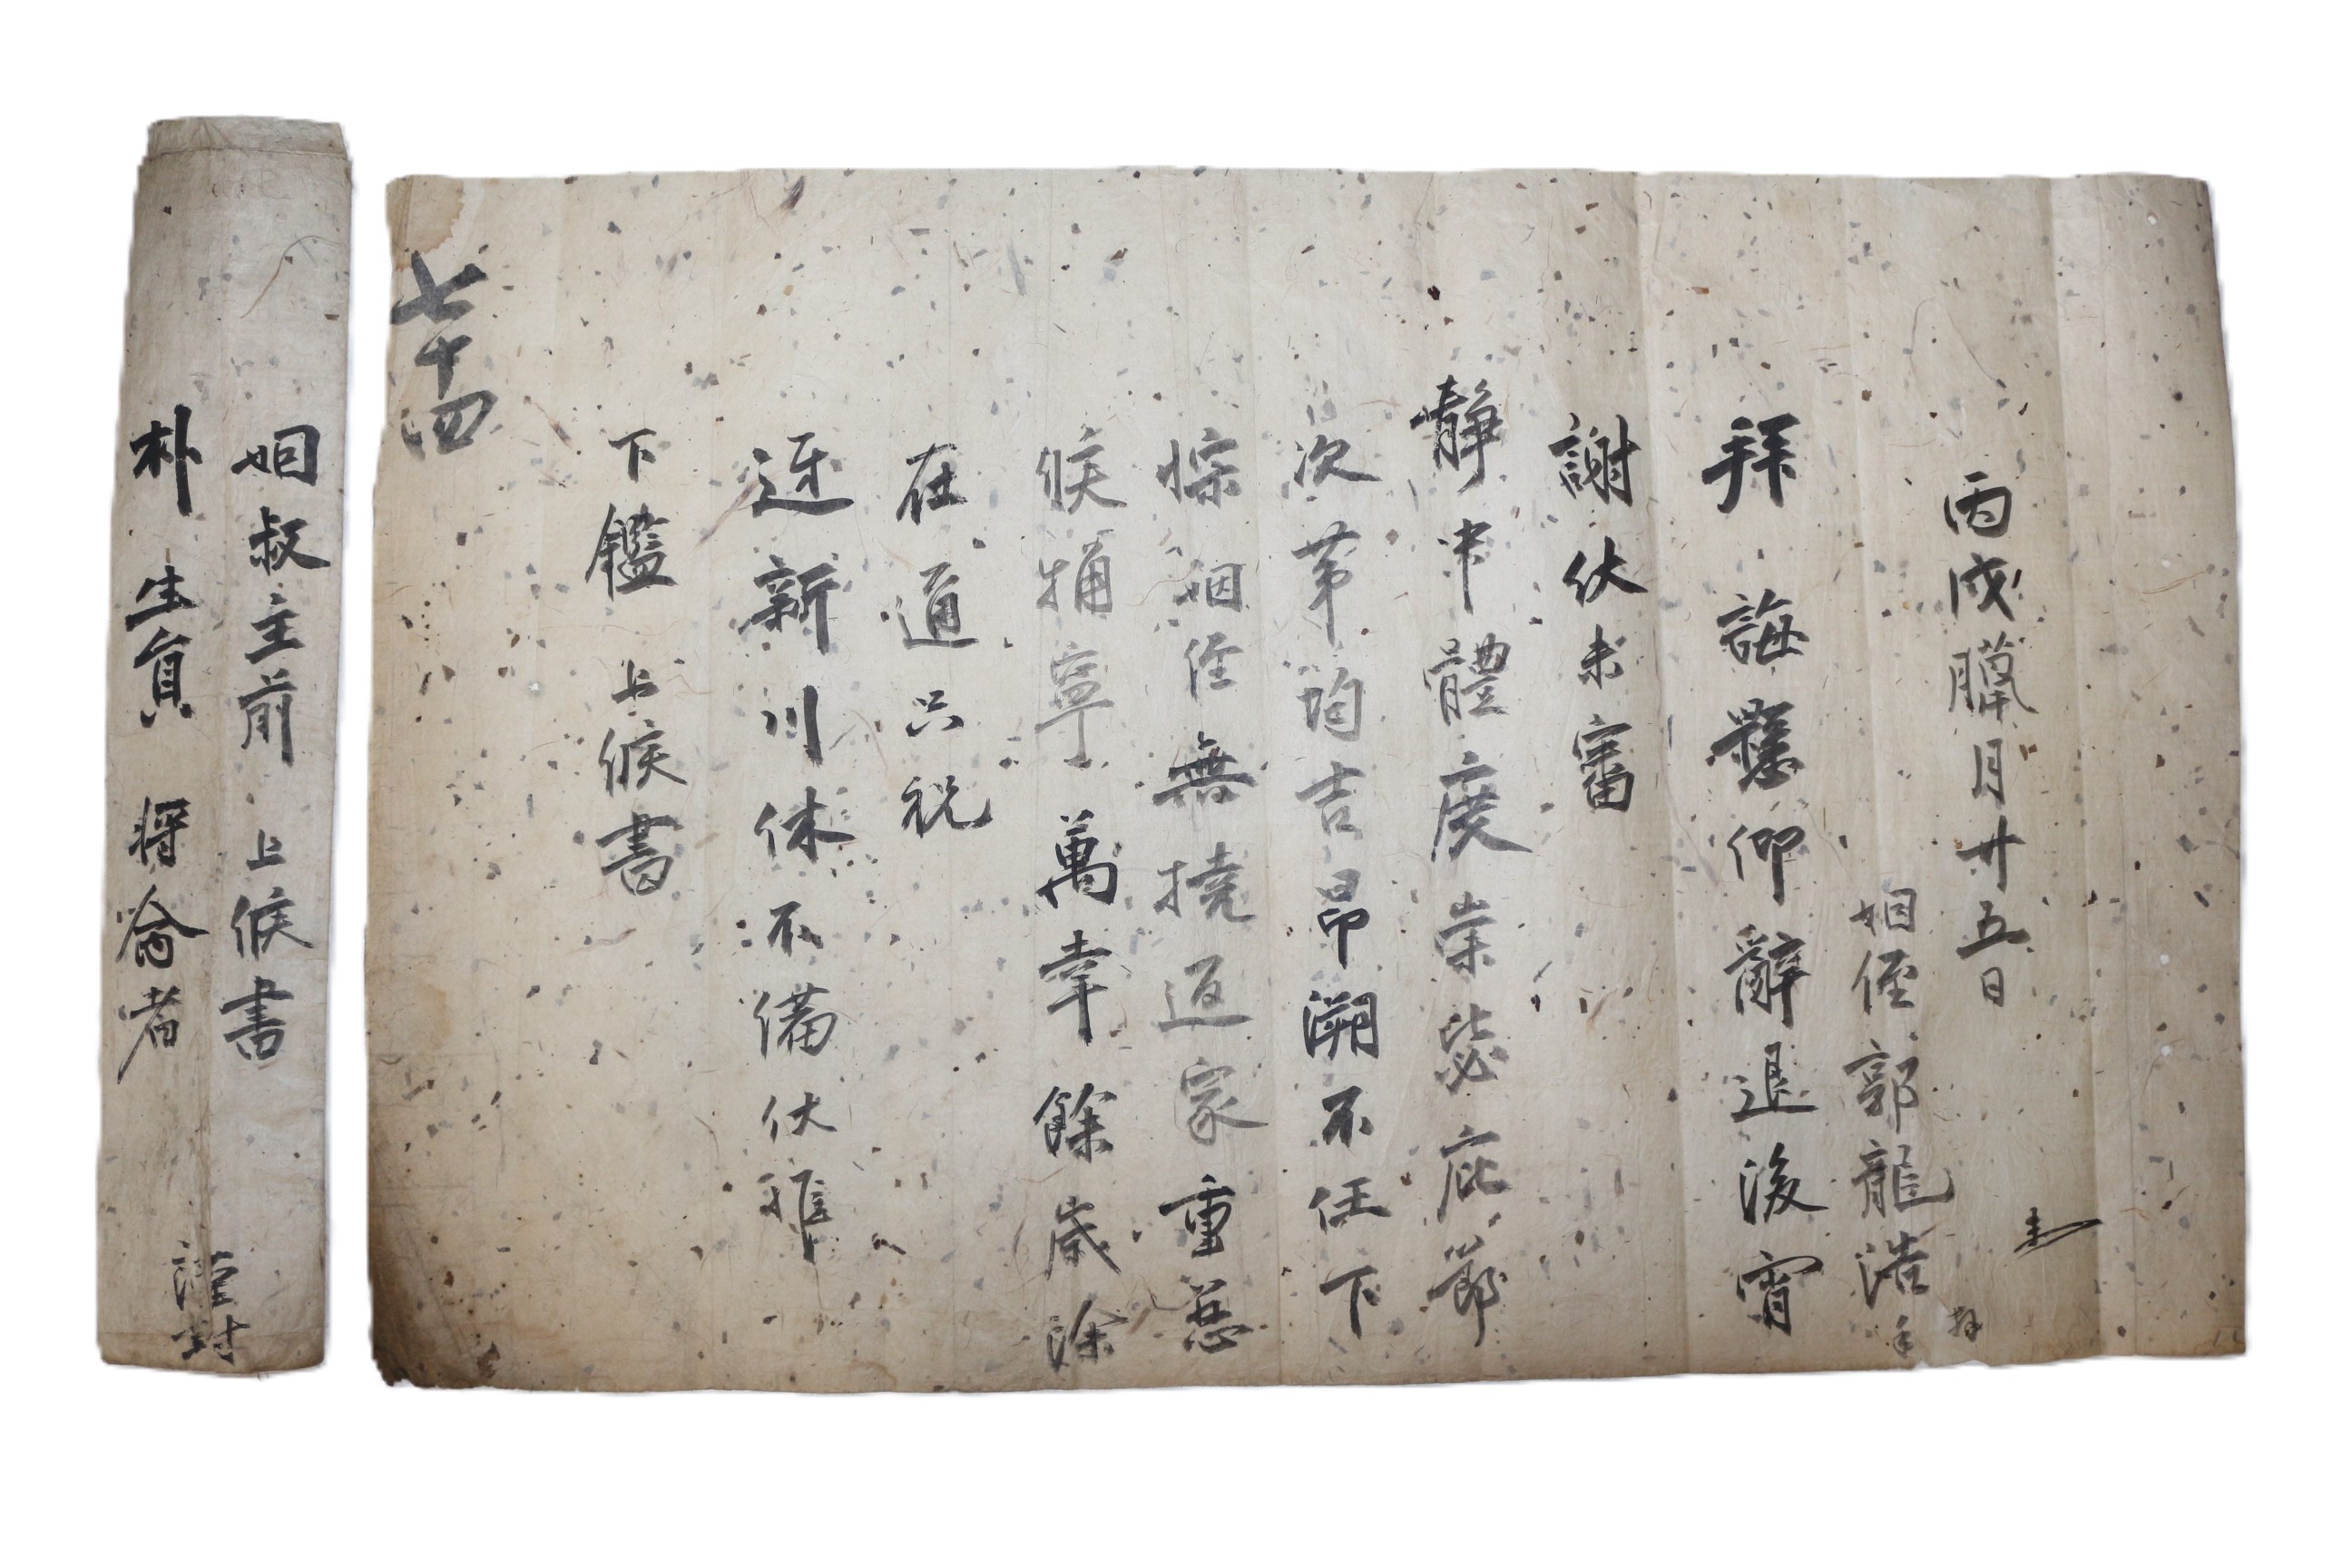 姻叔主前 上候書
朴生員 將命者
謹封
丙戌臘月廿五日
姻侄郭龍浩
拜 誨懸仰辭退後宵
謝伏未審
靜中體度崇毖庇節
次第均吉昂溯不任下
悰姻侄無撓返家重慈
候捅寧萬幸餘歲除
在邇只祝
迓新川休不備伏惟
下鑑 上候書
七十四